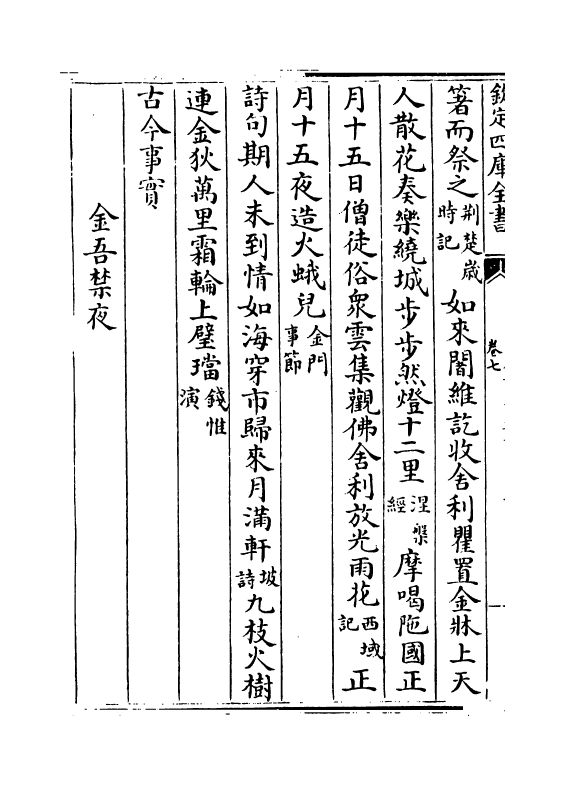 欽定四庫全書
卷七
箸而祭之荆楚歲時記如來闍維訖收舍利罌置金牀上天
人散花奏樂繞城步步然燈十二里涅槃經摩喝陁國正
月十五日僧徒俗衆雲集觀佛舍利放光雨花西域記正
月十五夜造火蛾兒金門事節
詩句期人未到情如海穿市歸來月滿軒坡詩九枝火樹
連金狄萬里霜輪上璧璫錢惟演
古今事實
金吾禁夜